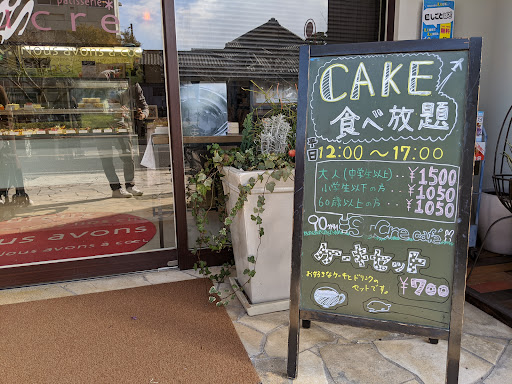 patisserie
cre
Nous avons à c
us avons
Nous avons à c
CAKE
食べ放題
平日 12:00～17:00
大人(中学生以上)‥¥1500
小学生以下の方‥¥1050
60歳以上の方‥¥1050
90分
cafe
ケーキセット
お好きなケーキとドリンクの
セットです。
¥700